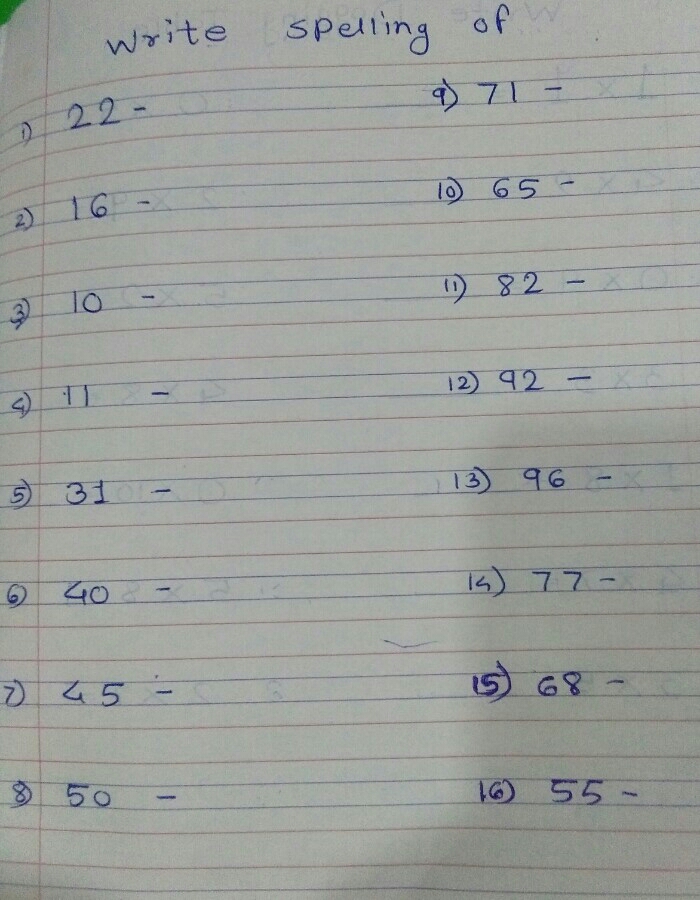 Write spelling of
1) 22 -
2) 16 -
3) 10 -
4) 11 -
5) 31 -
6) 40 -
7) 45 -
8) 50 -
9) 71 -
10) 65 -
11) 82 -
12) 92 -
13) 96 -
14) 77 -
15) 68 -
16) 55 -